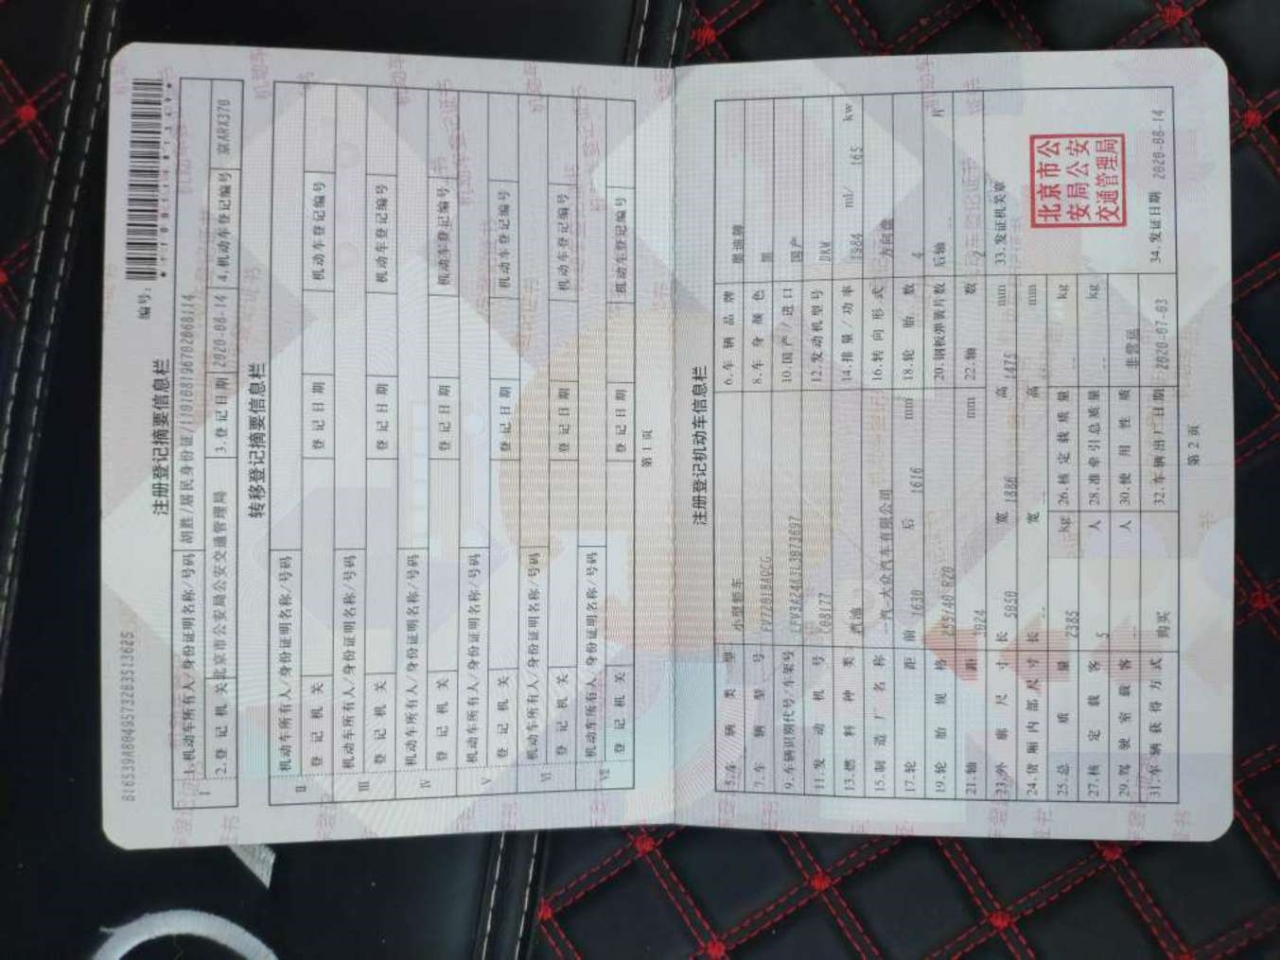 编号：
注册登记摘要信息栏
I
1.机动车所有人/身份证明名称/号码 胡胜/居民身份证/
2.登记机关 北京市公安局公安交通管理局 3.登记日期 2020-08-14 4.机动车登记编号
转移登记摘要信息栏
II 机动车所有人/身份证明名称/号码
登记机关 登记日期 机动车登记编号
III 机动车所有人/身份证明名称/号码
登记机关 登记日期 机动车登记编号
IV 机动车所有人/身份证明名称/号码
登记机关 登记日期 机动车登记编号
V 机动车所有人/身份证明名称/号码
登记机关 登记日期 机动车登记编号
VI 机动车所有人/身份证明名称/号码
登记机关 登记日期 机动车登记编号
VII 机动车所有人/身份证明名称/号码
登记机关 登记日期 机动车登记编号
第1页
注册登记机动车信息栏
5.车辆类型 小型轿车 6.车辆品牌 奥迪牌
7.车辆型号 8.车身颜色 黑
9.车辆识别代号/车架号 10.国产/进口 国产
11.发动机号 12.发动机型号 DKW
13.燃料种类 汽油 14.排量/功率 1984 ml/ 165 kw
15.制造厂名称 一汽-大众汽车有限公司 16.转向形式 方向盘
17.轮距 前 1630 后 1616 mm 18.轮胎数 4
19.轮胎规格 255/40 R20 20.钢板弹簧片数 后轴 片
21.轴距 3024 mm 22.轴数 2
23.外廓尺寸 长 5050 宽 1886 高 1475 mm 33.发证机关章
24.货厢内部尺寸 长 宽 高 mm
25.总质量 2385 kg 26.核定载质量 kg
27.核定载客 5 人 28.准牵引总质量 kg
29.驾驶室载客 人 30.使用性质 非营运
31.车辆获得方式 购买 32.车辆出厂日期 2020-07-03 34.发证日期 2020-08-14
北京市公
安局公安
交通管理局
第2页